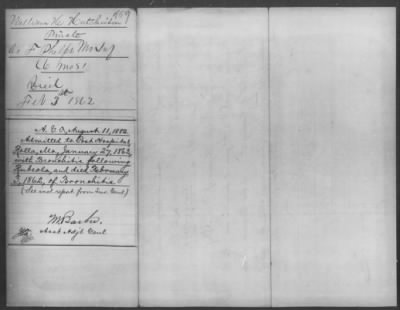 William H. Hutchinson
Private
Co F Phelps Mo Inf
6 mos.
Died
Feb 3rd 1862
A. G. O. August 11, 1882
Admitted to Post Hospital
Rolla, Mo, January 27, 1862,
with Bronchitis following
Rubeola, and died February
3, 1862, of Bronchitis
(See incl report from Sur. Genl)
M Barber.
Asst Adjt Genl